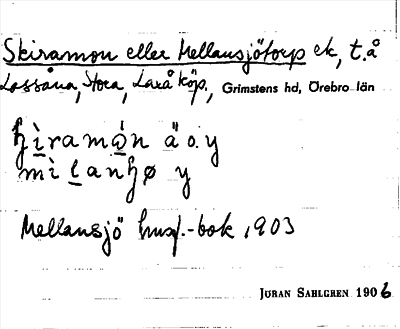 Skiramon eller Mellansjötorp ek, t.å
Lassåna, Stora, Laxå köp., Grimstens hd, Örebro län
ɧìramón ä o. y
mìlanɧø y
Mellansjö husf.-bok, 1903
JÖRAN SAHLGREN 1906